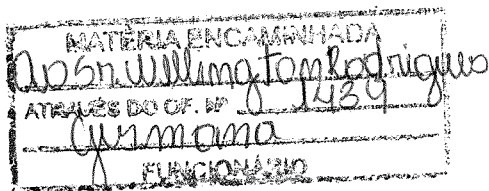 MATÉRIA ENCAMINHADA
ao Sr. Wellington Rodrigues
ATRAVÉS DO OF. Nº 1439
Germana
FUNCIONÁRIO